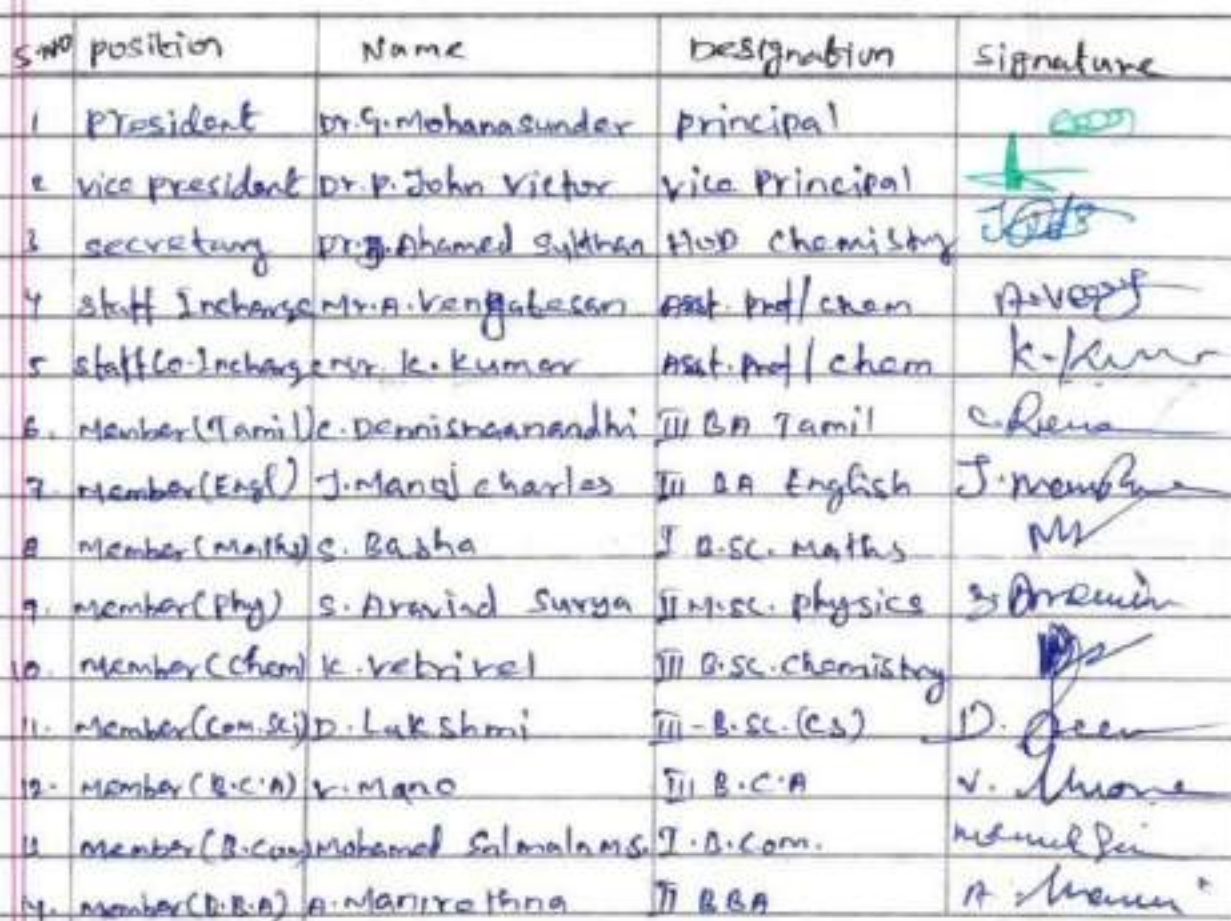 S.NO position Name Designation signature
1 President Dr.G.Mohanasunder principal
2 vice president Dr.P.John Victor vice Principal
3 secretary Dr. Ahamed HOD Chemistry
4 staff Incharge Mr.A.Vengatesan Asst. Prof/chem
5 staff Co-Incharge Mr. K. Kumar Asst. Prof/chem K.Kumar
6. Member(Tamil) C. III BA Tamil
7. Member(Engl) J.Manoj charles III BA English
8 Member(Maths) S. Basha I B.SC. Maths
9. Member(Phy) S. Aravind Surya II M.SC. physics
10. Member(Chem) K. Vetrivel III B.SC. Chemistry
11. Member(Com.Sci) D. Lakshmi III-B.SC.(CS)
12. Member(B.C.A) V. Mano III B.C.A
13 Member(B.Com) Mohamed I.B.Com.
14. Member(B.B.A) A. Manirethna II BBA